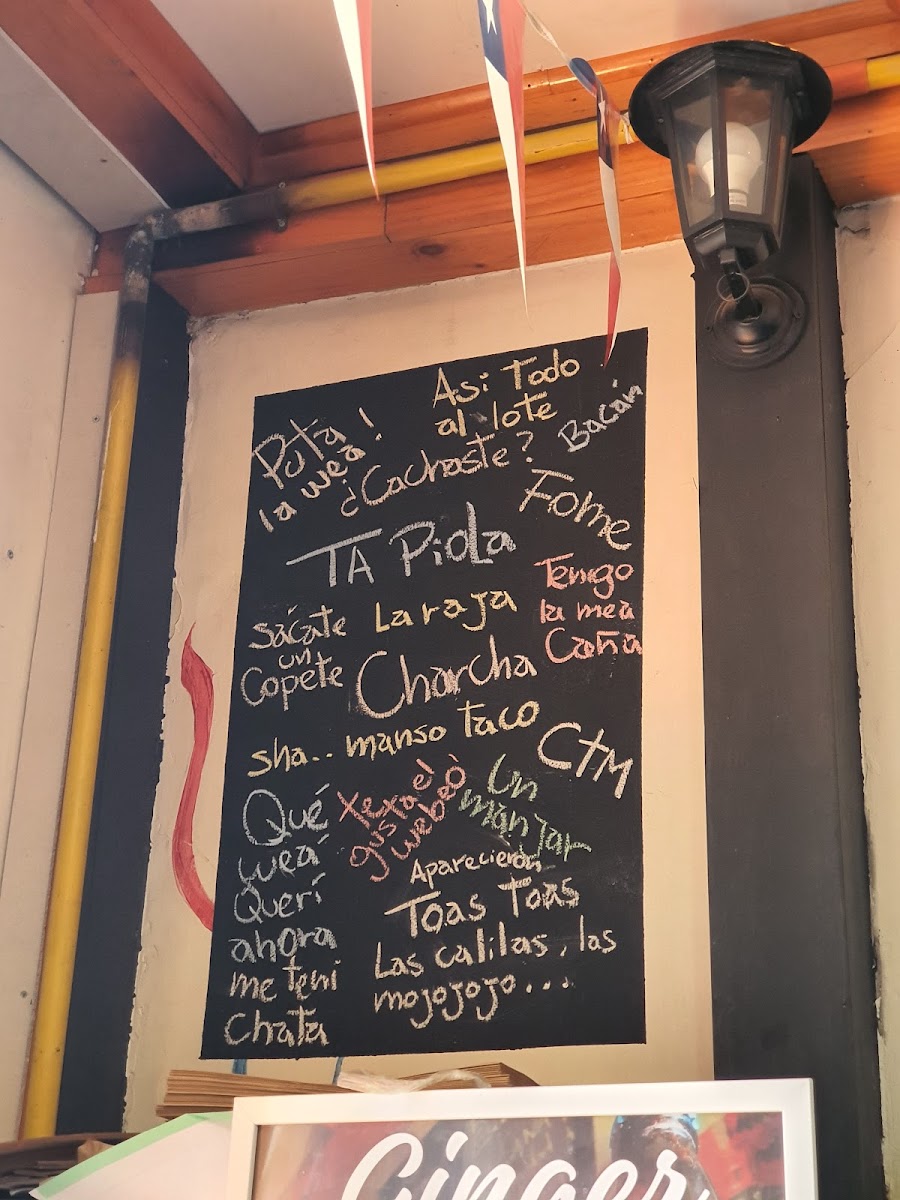 Asi Todo
al lote
Bacán
Puta
la wea!
¿Cachaste?
Fome
TA PiOLa
Tengo
la mea
Caña
La raja
sácate
un
Copete
Charcha
sha.. manso taco
CTM
Qué
weá
Querí
ahora
me tení
Chata
texa el
gusta
webeo
Un
manjar
Aparecieron
Toas Toas
Las calilas, las
mojojojo...
Ginger